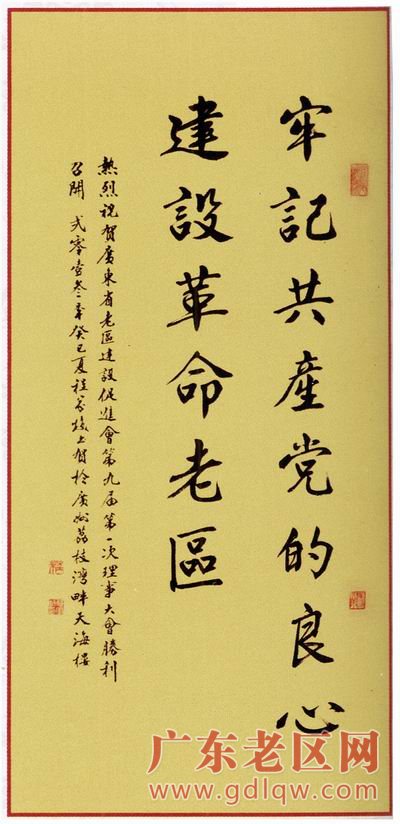 牢記共產党的良心
建設革命老區
熱烈祝賀廣東省老區建設促進會第九届第一次理事大會勝利
召開 弍零壹叁年癸巳夏程 上賀於廣州荔枝灣畔天海樓
广东老区网
www.gdlqw.com